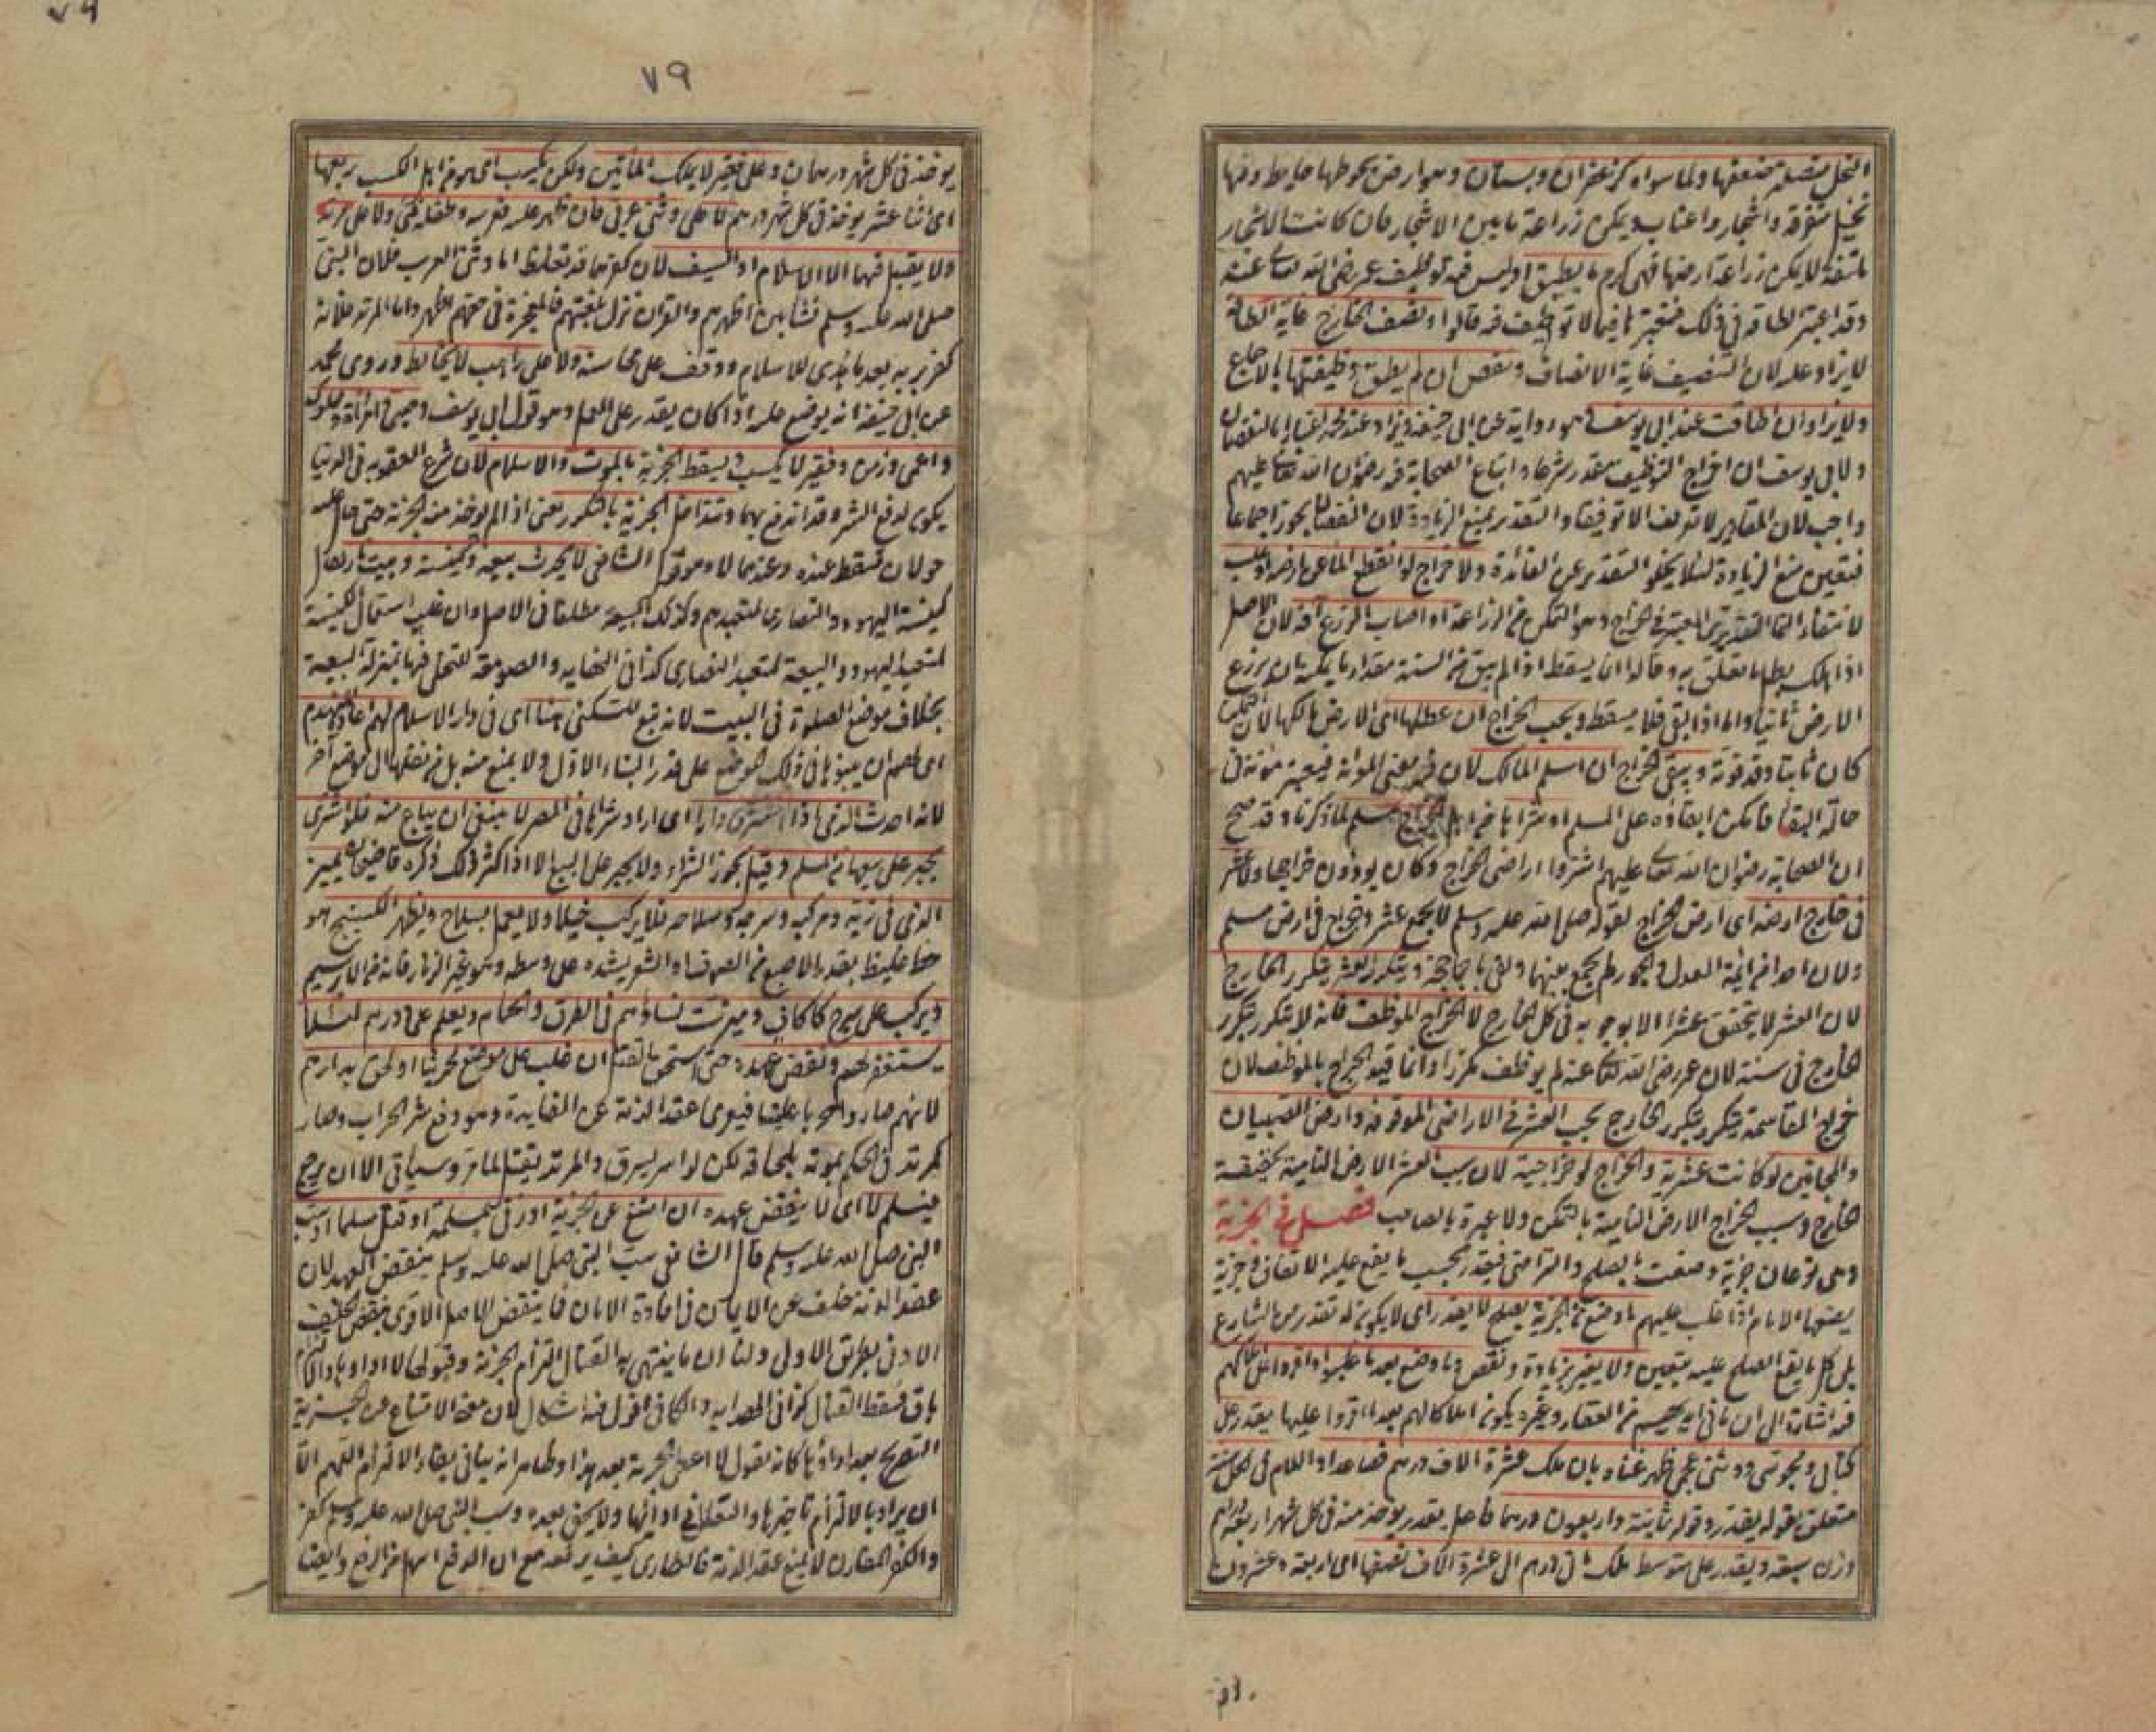 النخل متصلة ضعفها ولما سواه كزعفران وبستان وهو ارض يحوطها حايط وفيها
نخيل متفرقة واشجار واعناب ويمكن زراعة ما بين الاشجار فان كانت الاشجار
ملتفة لا يمكن زراعة ارضها فهى كرم ما يطيق اذ ليس فيه توظيف عمر رضى الله تعالى عنه
وقد اعتبر الطاقة فى ذلك فنعتبرها فيما لا توظيف فيه قالوا ونصف الخارج غاية الطاقة
لا يزاد عليه لان التنصيف غاية الانصاف ونقص ان لم يطق وظيفتها بالاجماع
ولا يزاد ان اطاقت عند ابى يوسف وهو رواية عن ابى حنيفة ويزاد عند محمد اعتبارا بالنقصان
ولابى يوسف ان خراج التوظيف مقدر شرعا واتباع الصحابة فيه رضوان الله تعالى عليهم
واجب لان المقادير لا تعرف الا توقيفا والتقدير يمنع الزيادة لان النقصان يجوز اجماعا
فتعين منع الزيادة لئلا يخلو التقدير عن الفائدة ولا خراج لو انقطع الماء عن ارضه او غلب
لانتفاء النماء التقديرى المعتبر فى الخراج وهو التمكن من الزراعة او اصاب الزرع آفة لان الاصل
اذا هلك بطل ما تعلق به وقالوا انما يسقط اذا لم يبق من السنة مقدار ما يمكنه ان يزرع
الارض ثانيا واما اذا بقى فلا يسقط ويجب الخراج ان عطلها اى الارض مالكها لان التمكن
كان ثابتا وقد فوته ويبقى الخراج ان اسلم المالك لان فيه معنى المؤنة فيعتبر مؤنة فى
حالة البقاء فامكن ابقاؤه على المسلم او شراها من اهل الخراج مسلم لما ذكرنا وقد صح
ان الصحابة رضوان الله تعالى عليهم اشتروا اراضى الخراج وكان يؤدون خراجها ولا عشر
فى خارج ارضه اى ارض الخراج لقوله صلى الله عليه وسلم لا يجمع عشر وخراج فى ارض مسلم
ولان احدا من ائمة العدل والجور لم يجمع بينهما وكفى باجماعهم حجة ويتكرر العشر بتكرر الخارج
لان العشر لا يتحقق عشرا الا بوجوبه فى كل الخارج لا الخراج الموظف فانه لا يتكرر بتكرر
الخارج فى سنة لان عمر رضى الله تعالى عنه لم يوظف مكررا وانما قيد الخراج بالموظف لان
خراج المقاسمة يتكرر بتكرر الخارج يجب العشر فى الاراضى الموقوفة وارض الصبيان
والمجانين لو كانت عشرية والخراج لو خراجية لان سبب العشر الارض النامية بحقيقة
الخارج وسبب الخراج الارض النامية بالتمكن ولا عبرة بالصاحب فصل فى الجزية
وهى نوعان جزية وضعت بالصلح والتراضى فيقدر بحسب ما يقع عليه الاتفاق وجزية
يضعها الامام اذا غلب عليهم ما وضع من الجزية بصلح لا يقدر اى لا يكون له تقدير من الشارع
بل كل ما يقع الصلح عليه يتعين ولا يغير بزيادة ونقص وما وضع بعد ما غلبوا واقروا على املاكهم
فيه اشارة الى ان ما فى ايديهم من العقار وغيره يكون املاكا لهم بعد ما اقروا عليها يقدر على
كتابى ومجوسى ووثنى عجمى ظهر غناه بان ملك عشرة الاف درهم فصاعدا واللام فى لكل سنة
متعلق بقوله يقدر وقوله ثمانية واربعون درهما فاعل يقدر يؤخذ منه فى كل شهر اربعة دراهم
وزن سبعة ويقدر على متوسط ملك مأتى درهم الى عشرة الاف نصفها اى اربعة وعشرون
٧٩
يؤخذ فى كل شهر درهمان وعلى فقير لا يملك المأتين ولكن يكسب اى هو من اهل الكسب ربعها
اى اثنا عشر يؤخذ فى كل شهر درهم لا على وثنى عربى فان ظهر عليه فعرسه وطفله فئ ولا على مرتد
ولا يقبل فيهما الا الاسلام او السيف لان كفرهما قد تغلظ اما وثنى العرب فلان النبى
صلى الله عليه وسلم نشأ بين اظهرهم والقرآن نزل بلغتهم فالمعجزة فى حقهم اظهر واما المرتد فلانه
كفر بربه بعد ما هدى للاسلام ووقف على محاسنه ولا على راهب لا يخالط وروى محمد
عن ابى حنيفة انه يوضع عليه اذا كان يقدر على العمل وهو قول ابى يوسف وصبى وامرأة ومملوك
واعمى وزمن وفقير لا يكسب ويسقط الجزية بالموت والاسلام لان شرع العقوبة فى الدنيا
يكون لدفع الشر وقد اندفع بهما وتتداخل الجزية بالتكرر يعنى اذا لم يؤخذ منه الجزية حتى حال عليه
حولان تسقط عنده وعندهما لا وهو قول الشافعى لا يحدث بيعة وكنيسة وبيت نار يقال
كنيسة اليهود والنصارى لمتعبدهم وكذلك البيعة مطلقا فى الاصل وان غلب استعمال الكنيسة
لمتعبد اليهود والبيعة لمتعبد النصارى كذا فى النهاية والصومعة للتخلى فيها بمنزلة البيعة
بخلاف موضع الصلوة فى البيت لانه تبع للسكنى هنا اى فى دار الاسلام لهم اعادة المنهدم
اى لهم ان يبنوها فى ذلك الموضع على قدر البناء الاول ولا يمنع منه بل من نقلها الى موضع آخر
لانه احداث الذمى اذا اشترى دارا اى اراد شراها فى المصر لا ينبغى ان يباع منه فلو اشترى
يجبر على بيعها من المسلم وقيل يجوز الشراء ولا يجبر على البيع الا اذا كثر ذلك ذكره قاضيخان يميز
الذمى فى زيه ومركبه وسرجه وسلاحه فلا يركب خيلا ولا يعمل بسلاح ويظهر الكستيج هو
خيط غليظ بقدر الاصبع من الصوف او الشعر يشده على وسطه وهو غير الزنار فانه من الابريسم
ويركب على سرج كاكاف وميزت نساؤهم فى الطرق والحمام ويعلم على دورهم لئلا
يستغفر لهم ونقض عهده حتى استحق القتل ان غلب على موضع لحربنا او لحق بدارهم
لانهم صاروا حربا علينا فيعرى عقد الذمة عن الفايدة وهو دفع شر الحراب وصار
كمرتد فى الحكم بموته بلحاقه لكن لو اسر يسترق والمرتد يقتل لما مر وسيأتى الا ان يرجع
فيسلم لا اى لا ينقض عهده ان امتنع عن الجزية او زنى بمسلمة او قتل مسلما او سب
النبى صلى الله عليه وسلم قال الشافعى سب النبى صلى الله عليه وسلم ينقض العهد لان
عقد الذمة خلف عن الايمان فى افادة الامان فما ينقض الاصل الاقوى ينقض الخلف
الادنى بطريق الاولى ولنا ان ما ينتهى به القتال التزام الجزية وقبولها لا اداؤها والالتزام
باق فسقط القتال كذا فى الهداية والكافى اقول فيه اشكال لان معنى الامتناع عن الجزية
التصريح بعدم ادائها كانه يقول لا اعطى الجزية بعد هذا وظاهر انه ينافى بقاء الالتزام اللهم الا
ان يراد بالالتزام تأخيرها والتعلل فى ادائها ولا يخفى بعده وسب النبى صلى الله عليه وسلم كفر
والكفر المقارن لا يمنع عقد الذمة فالطارى كيف يرفعه مع ان الدفع اسهل من الرفع وايضا